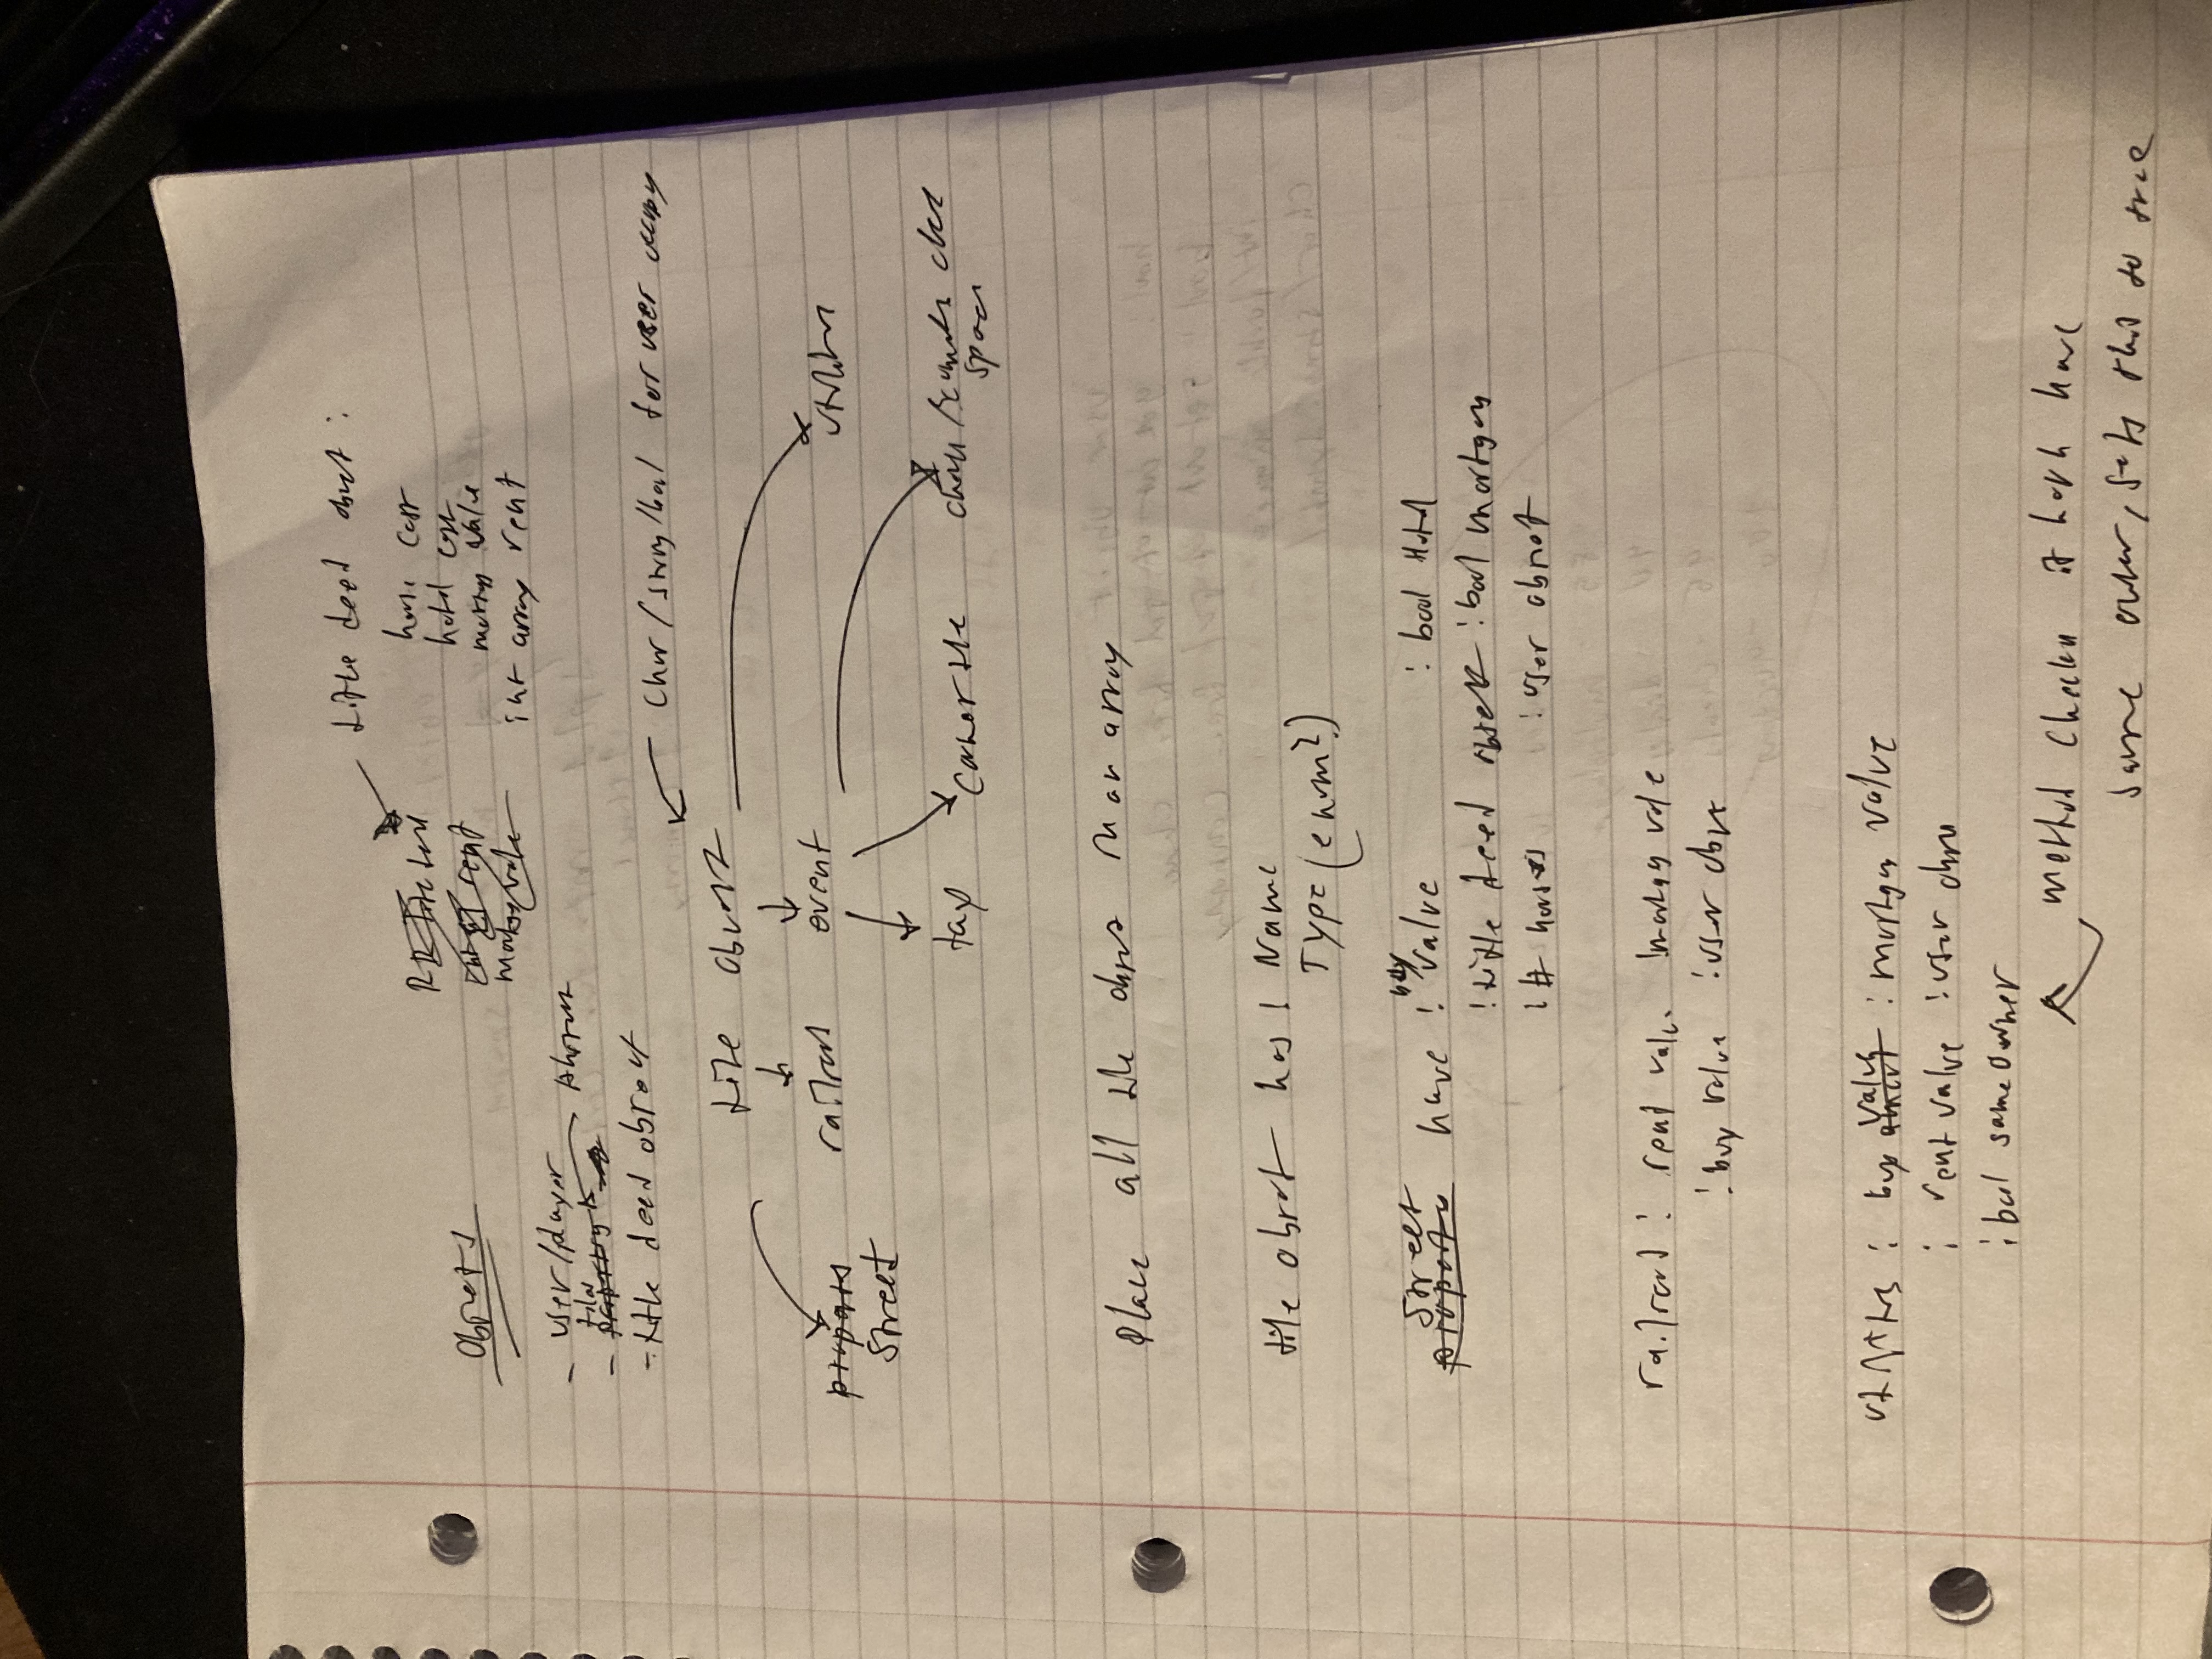 title deed object :
house cost
hotel cost
mortgage value
int array rent
RR title deed
rent
mortgage value
Objects
- user/player
tiles
- property
Abstract
- title deed object
char/string/bool for user occupy
tile object
propertys
railroad
event
utilities
Street
tax
corner tile
chance/community chest
space
Place all tile objects in an array
tile object has : Name
Type (enum?)
Street
property have : buy value : bool Hotel
: title deed object : bool mortgage
: # houses : user object
railroad : rent value : mortgage value
: buy value : user object
utilities : buy amount value : mortgage value
: rent value : user object
: bool sameOwner
method checks if both have
same owner, sets this to true